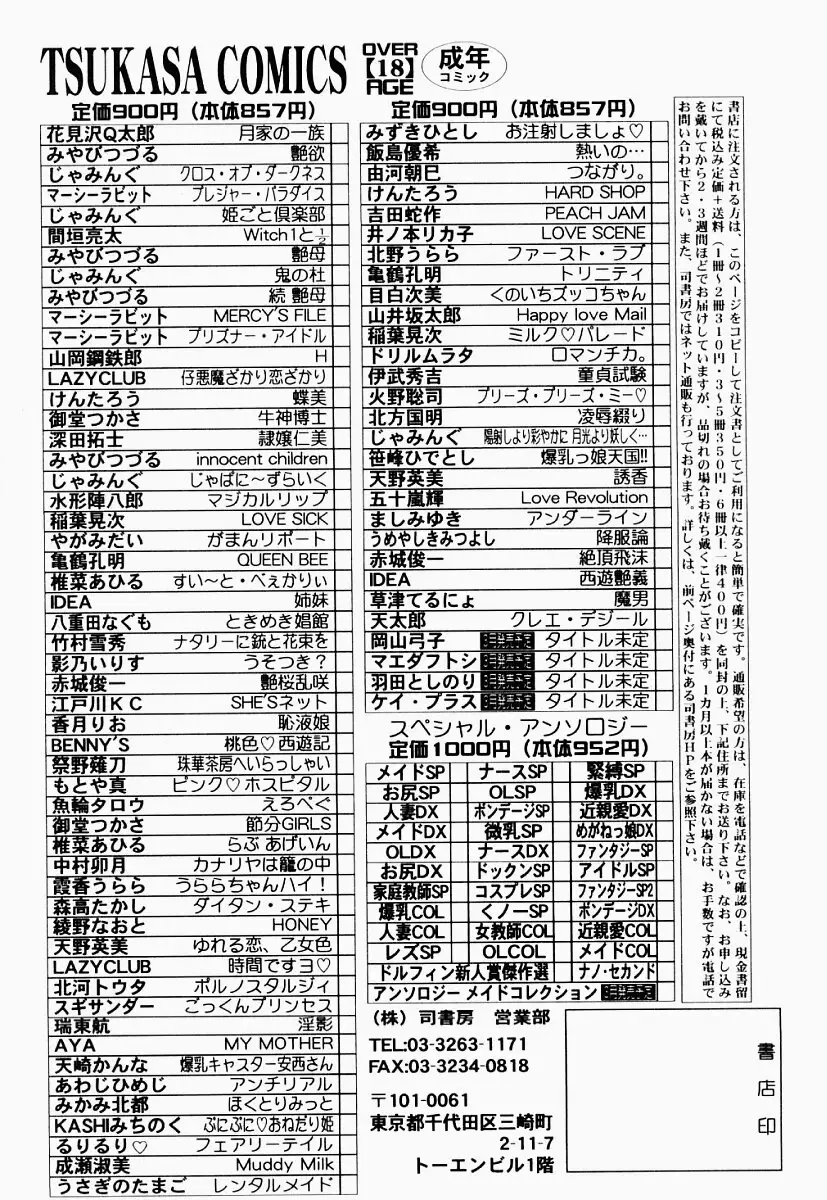 TSUKASA COMICS
OVER
【18】
AGE
成年
コミック
定価900円(本体857円)
花見沢Q太郎 月家の一族
みやびつづる 艶欲
じゃみんぐ クロス・オブ・ダークネス
マーシーラビット プレジャー・パラダイス
じゃみんぐ 姫ごと倶楽部
間垣亮太 Witch1と½
みやびつづる 艶母
じゃみんぐ 鬼の杜
みやびつづる 続 艶母
マーシーラビット MERCY'S FILE
マーシーラビット プリズナー・アイドル
山岡鋼鉄郎 H
LAZYCLUB 仔悪魔ざかり恋ざかり
けんたろう 蝶美
御堂つかさ 牛神博士
深田拓士 隷嬢仁美
みやびつづる innocent children
じゃみんぐ じゃぱに〜ずらいく
水形陣八郎 マジカルリップ
稲葉晃次 LOVE SICK
やがみだい がまんリポート
亀鶴孔明 QUEEN BEE
椎菜あひる すい〜と・べぇかりぃ
IDEA 姉妹
八重田なぐも ときめき娼館
竹村雪秀 ナタリーに銃と花束を
影乃いりす うそつき?
赤城俊一 艶桜乱咲
江戸川KC SHE'Sネット
香月りお 恥液娘
BENNY'S 桃色♡西遊記
祭野薙刀 珠華茶房へいらっしゃい
もとや真 ピンク♡ホスピタル
魚輪タロウ えろぺぐ
御堂つかさ 節分GIRLS
椎菜あひる らぶ あげいん
中村卯月 カナリヤは籠の中
霞香うらら うららちゃんハイ!
森高たかし ダイタン・ステキ
綾野なおと HONEY
天野英美 ゆれる恋、乙女色
LAZYCLUB 時間ですヨ♡
北河トウタ ポルノスタルジィ
スギサンダー ごっくんプリンセス
瑞東航 淫影
AYA MY MOTHER
天崎かんな 爆乳キャスター安西さん
あわじひめじ アンチリアル
みかみ北都 ほくとりみっと
KASHIみちのく ぷにぷに♡おねだり姫
るりるり♡ フェアリーテイル
成瀬淑美 Muddy Milk
うさぎのたまご レンタルメイド
定価900円(本体857円)
みずきひとし お注射しましょ♡
飯島優希 熱いの…
由河朝巳 つながり。
けんたろう HARD SHOP
吉田蛇作 PEACH JAM
井ノ本リカ子 LOVE SCENE
北野うらら ファースト・ラブ
亀鶴孔明 トリニティ
目白次美 くのいちズッコちゃん
山井坂太郎 Happy love Mail
稲葉晃次 ミルク♡パレード
ドリルムラタ ロマンチカ。
伊武秀吉 童貞試験
火野聡司 プリーズ・プリーズ・ミー♡
北方国明 凌辱綴り
じゃみんぐ 陽射しより彩やかに 月光より妖しく…
笹峰ひでとし 爆乳っ娘天国!!
天野英美 誘香
五十嵐輝 Love Revolution
ましみゆき アンダーライン
うめやしきみつよし 降服論
赤城俊一 絶頂飛沫
IDEA 西遊艶義
草津てるにょ 魔男
天太郎 クレエ・デジール
岡山弓子 タイトル未定
マエダフトシ タイトル未定
羽田としのり タイトル未定
ケイ・プラス タイトル未定
スペシャル・アンソロジー
定価1000円(本体952円)
メイドSP ナースSP 緊縛SP
お尻SP OLSP 爆乳DX
人妻DX ボンデージSP 近親愛DX
メイドDX 微乳SP めがねっ娘DX
OLDX ナースDX ファンタジーSP
お尻DX ドックンSP アイドルSP
家庭教師SP コスプレSP ファンタジーSP2
爆乳COL くノーSP ボンデージDX
人妻COL 女教師COL 近親愛COL
レズSP OLCOL メイドCOL
ドルフィン新人賞傑作選 ナノ・セカンド
アンソロジー メイドコレクション
(株)司書房 営業部
TEL:03-3263-1171
FAX:03-3234-0818
〒101-0061
東京都千代田区三崎町
2-11-7
トーエンビル1階
書店に注文される方は、このページをコピーして注文書としてご利用になると簡単で確実です。通販希望の方は、在庫を電話などで確認の上、現金書留
にて税込み定価+送料(1冊〜2冊310円・3〜5冊350円・6冊以上一律400円)を同封の上、下記住所までお送り下さい。なお、お申し込み
を戴いてから2・3週間ほどでお届けしていますが、品切れの場合お待ち戴くことがございます。1カ月以上本が届かない場合は、お手数ですが電話で
お問い合わせ下さい。また、司書房ではネット通販も行っております。詳しくは、前ページ奥付にある司書房HPをご参照下さい。
書店印